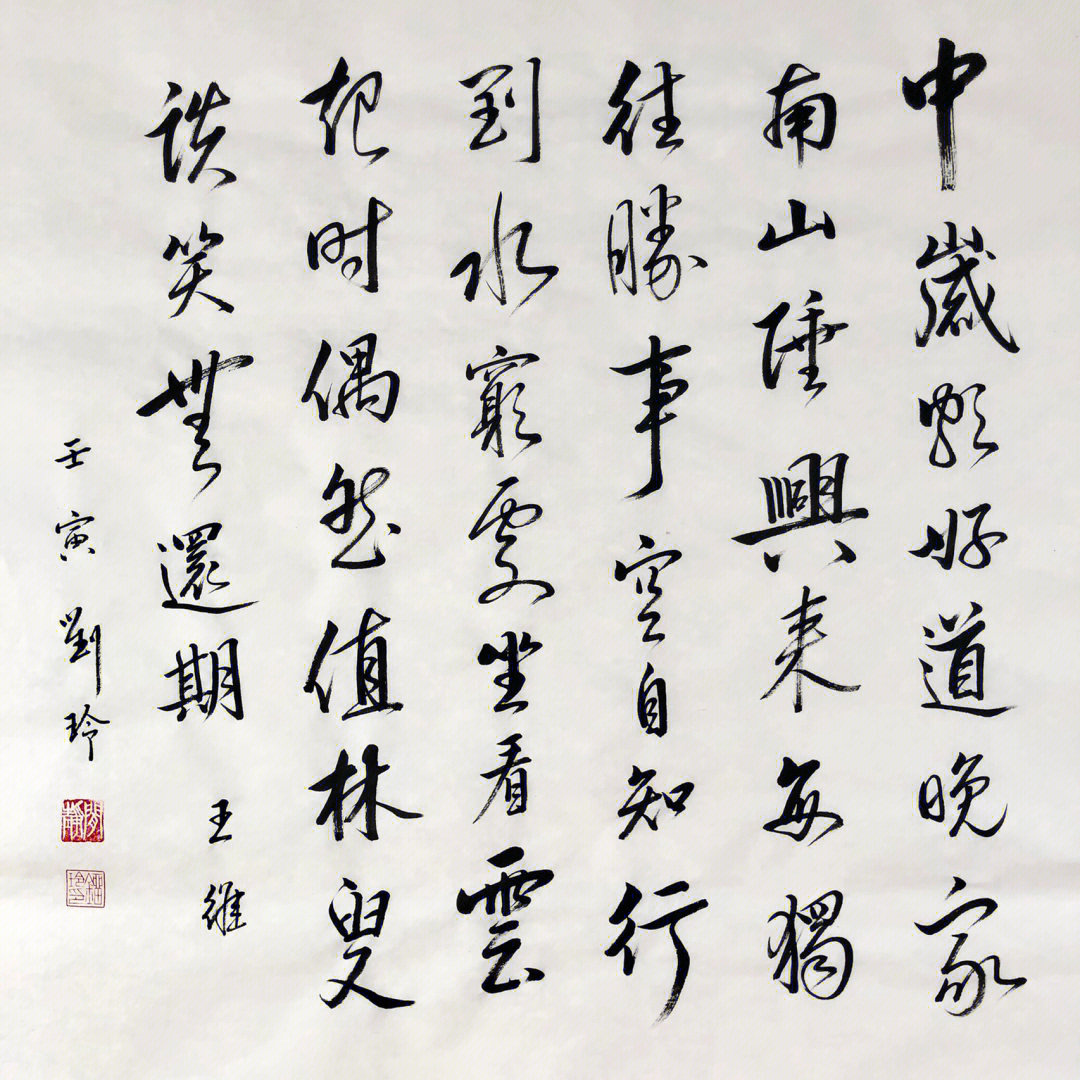 中歲頗好道晚家
南山陲興来每獨
往勝事空自知行
到水窮處坐看雲
起时偶然值林叟
談笑無還期 王維
壬寅 劉玲